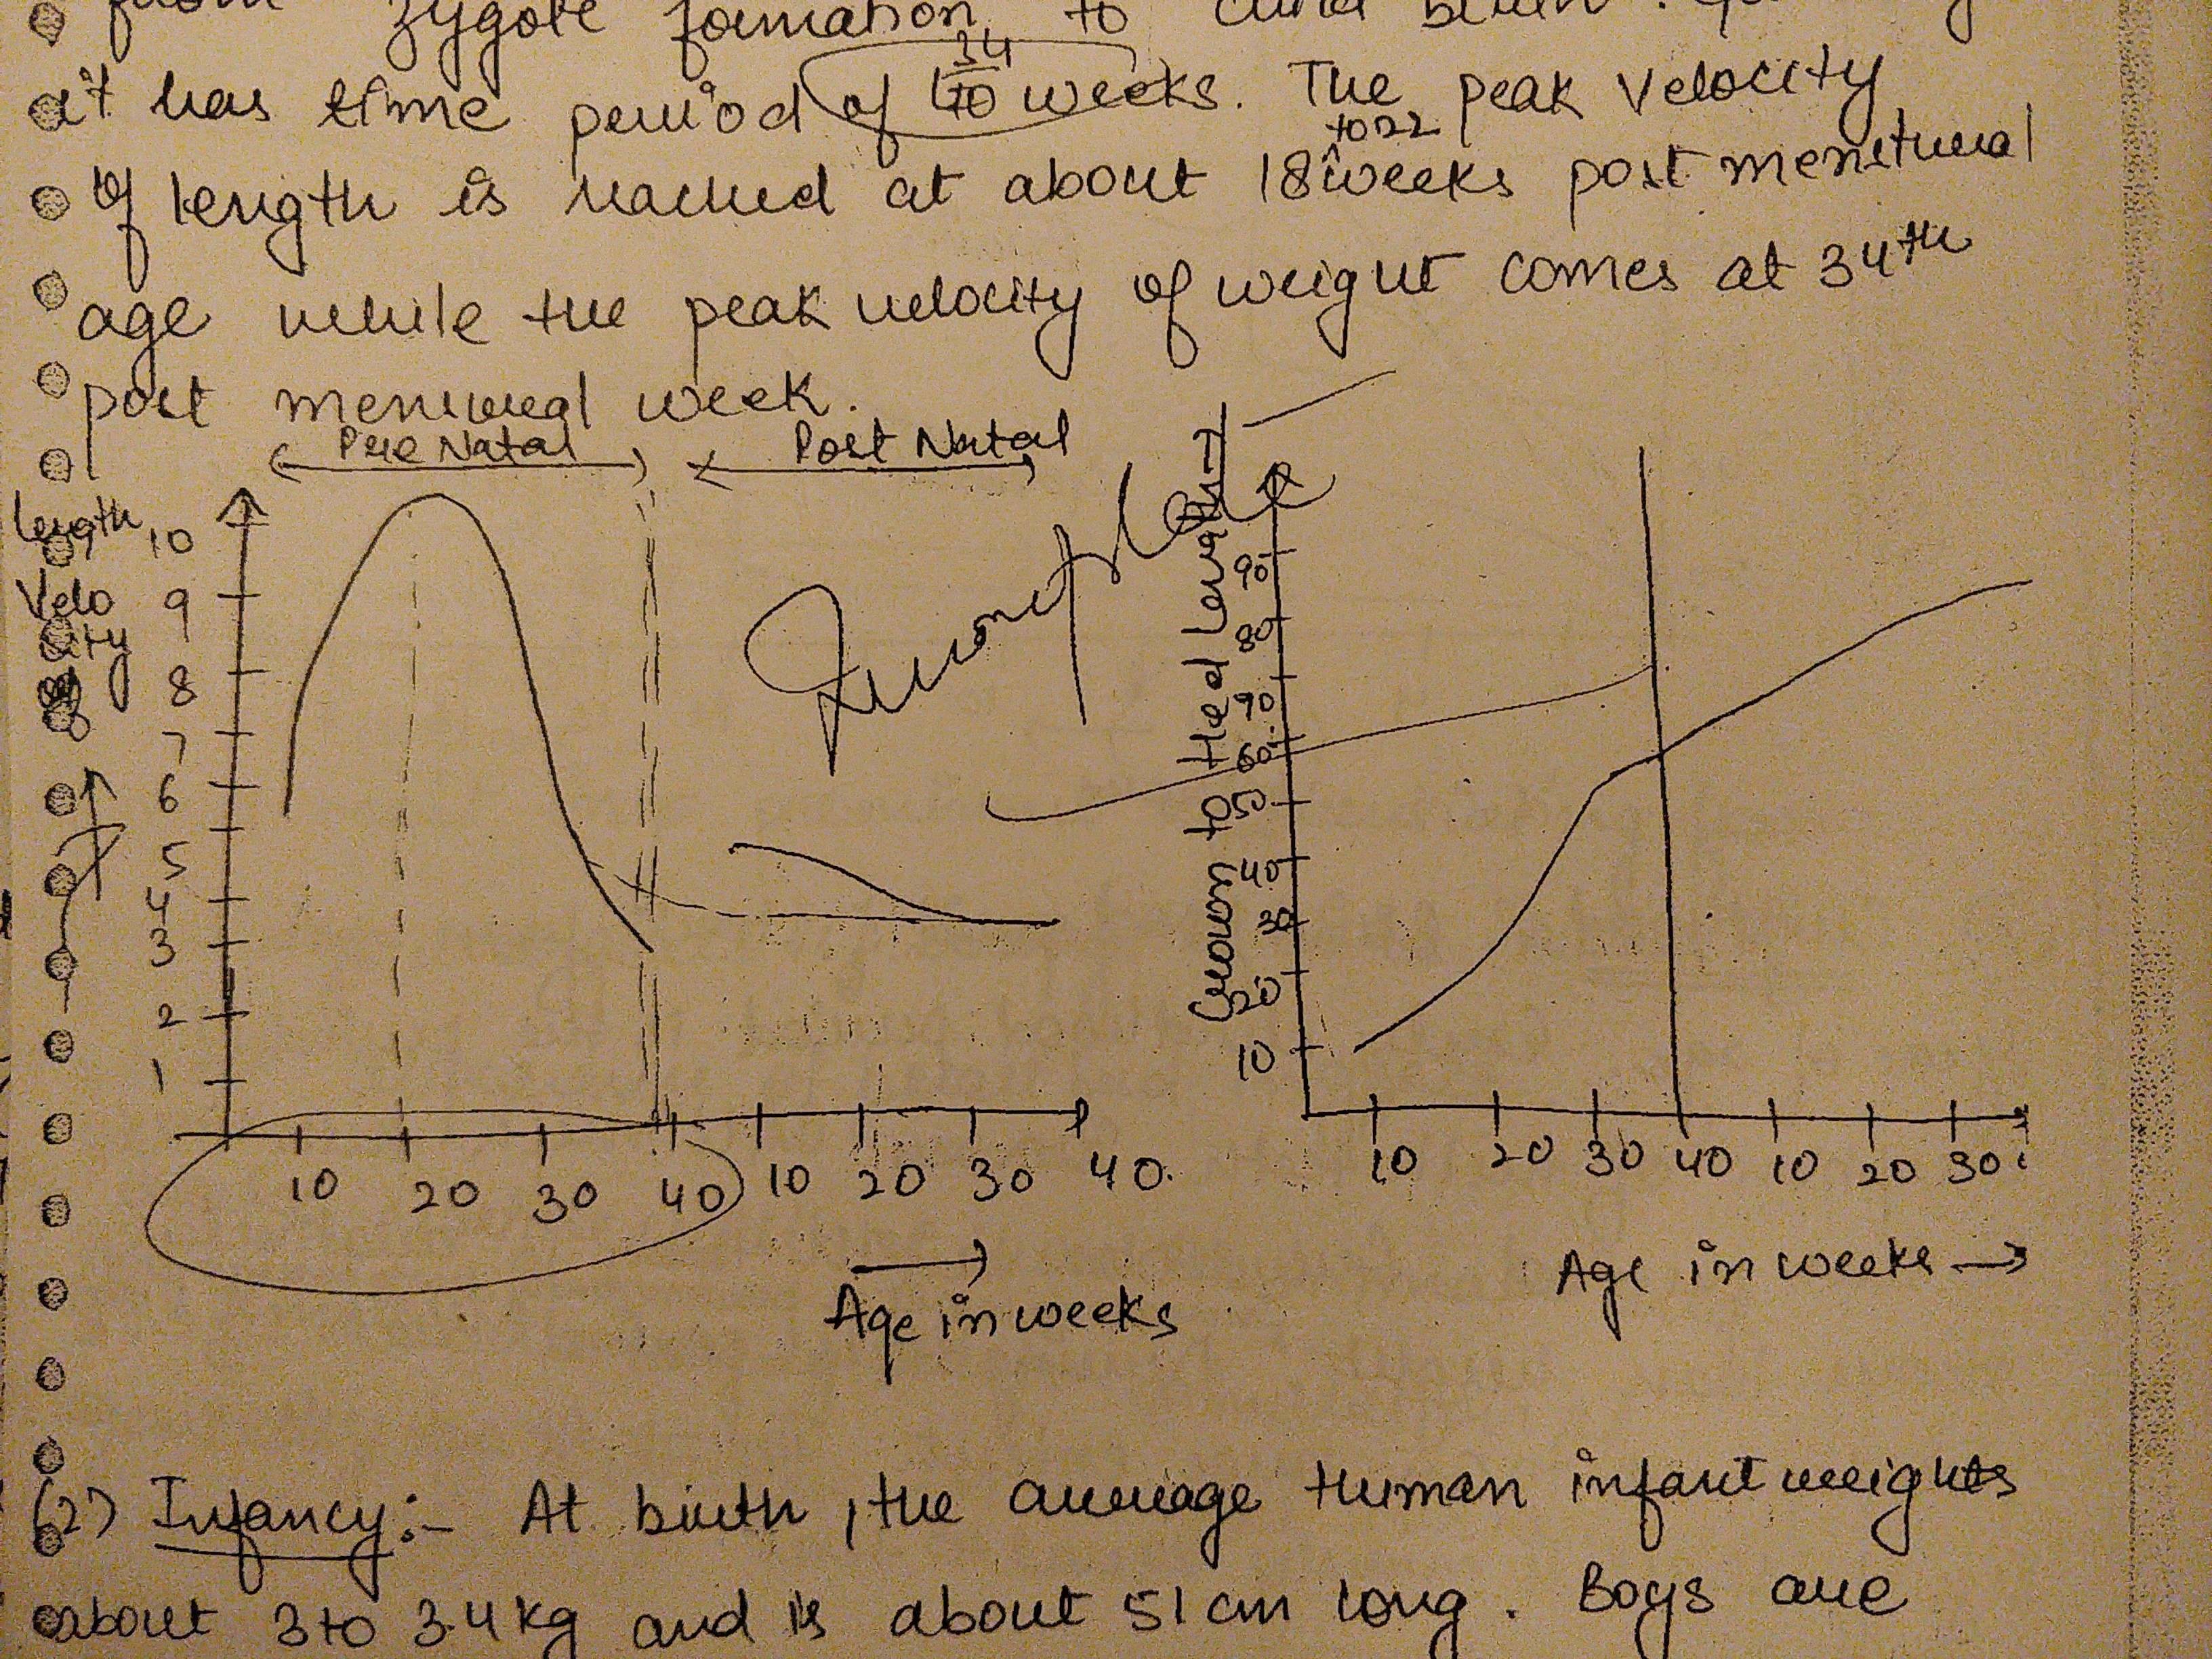 zygote formation to child birth.
it has time period of 40 weeks. The peak velocity
34
to 22
of length is reached at about 18 weeks post menstrual
age while the peak velocity of weight comes at 34th
post menstrual week.
Pre Natal
Post Natal
length
Velo
city
10
9
8
7
6
5
4
3
2
1
10 20 30 40 10 20 30 40.
Age in weeks
Incomplete
Crown to Heel length
90
80
90
60
50
40
30
20
10
10 20 30 40 10 20 30
Age in weeks →
(2) Infancy:- At birth, the average human infant weights
about 3 to 3.4 kg and is about 51 cm long. Boys are